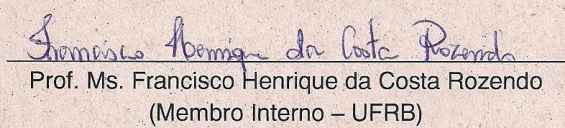 Francisco Henrique da Costa Rozendo
Prof. Ms. Francisco Henrique da Costa Rozendo
(Membro Interno – UFRB)